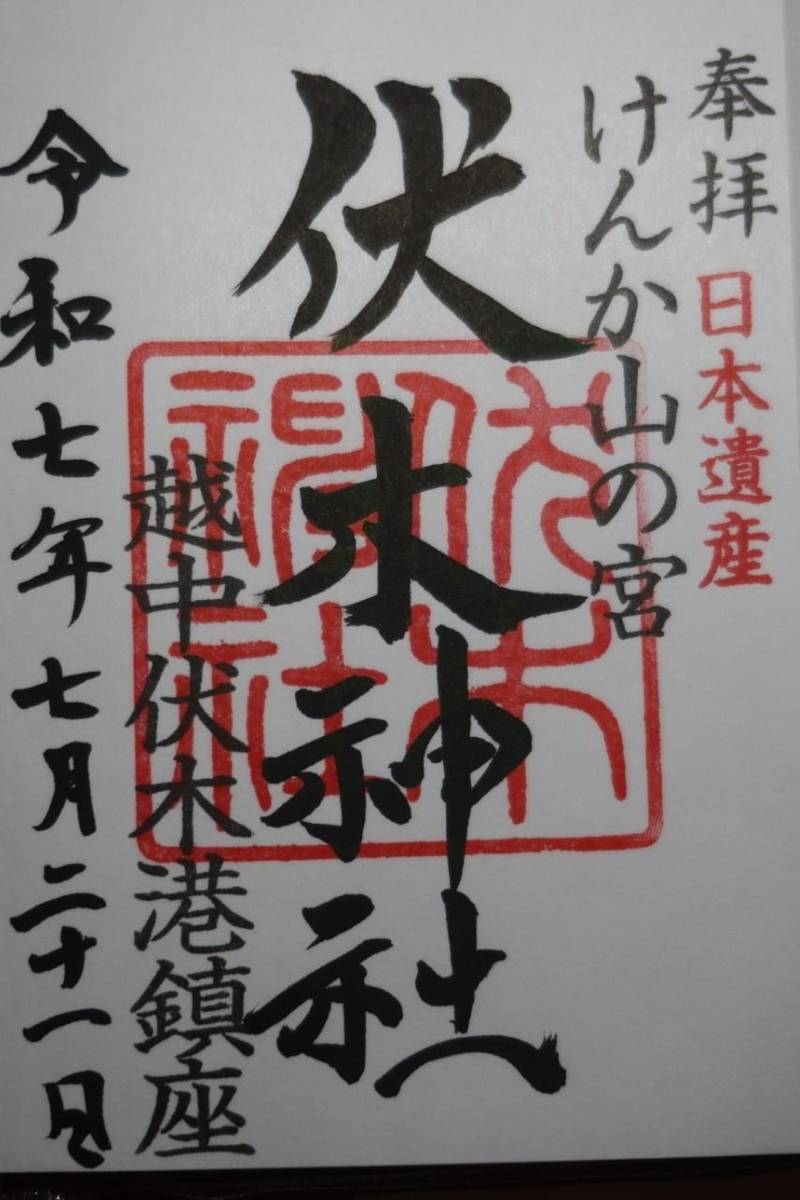 奉拝 日本遺産
けんか山の宮
伏木神社
伏木神社
越中伏木港鎮座
令和七年七月二十一日